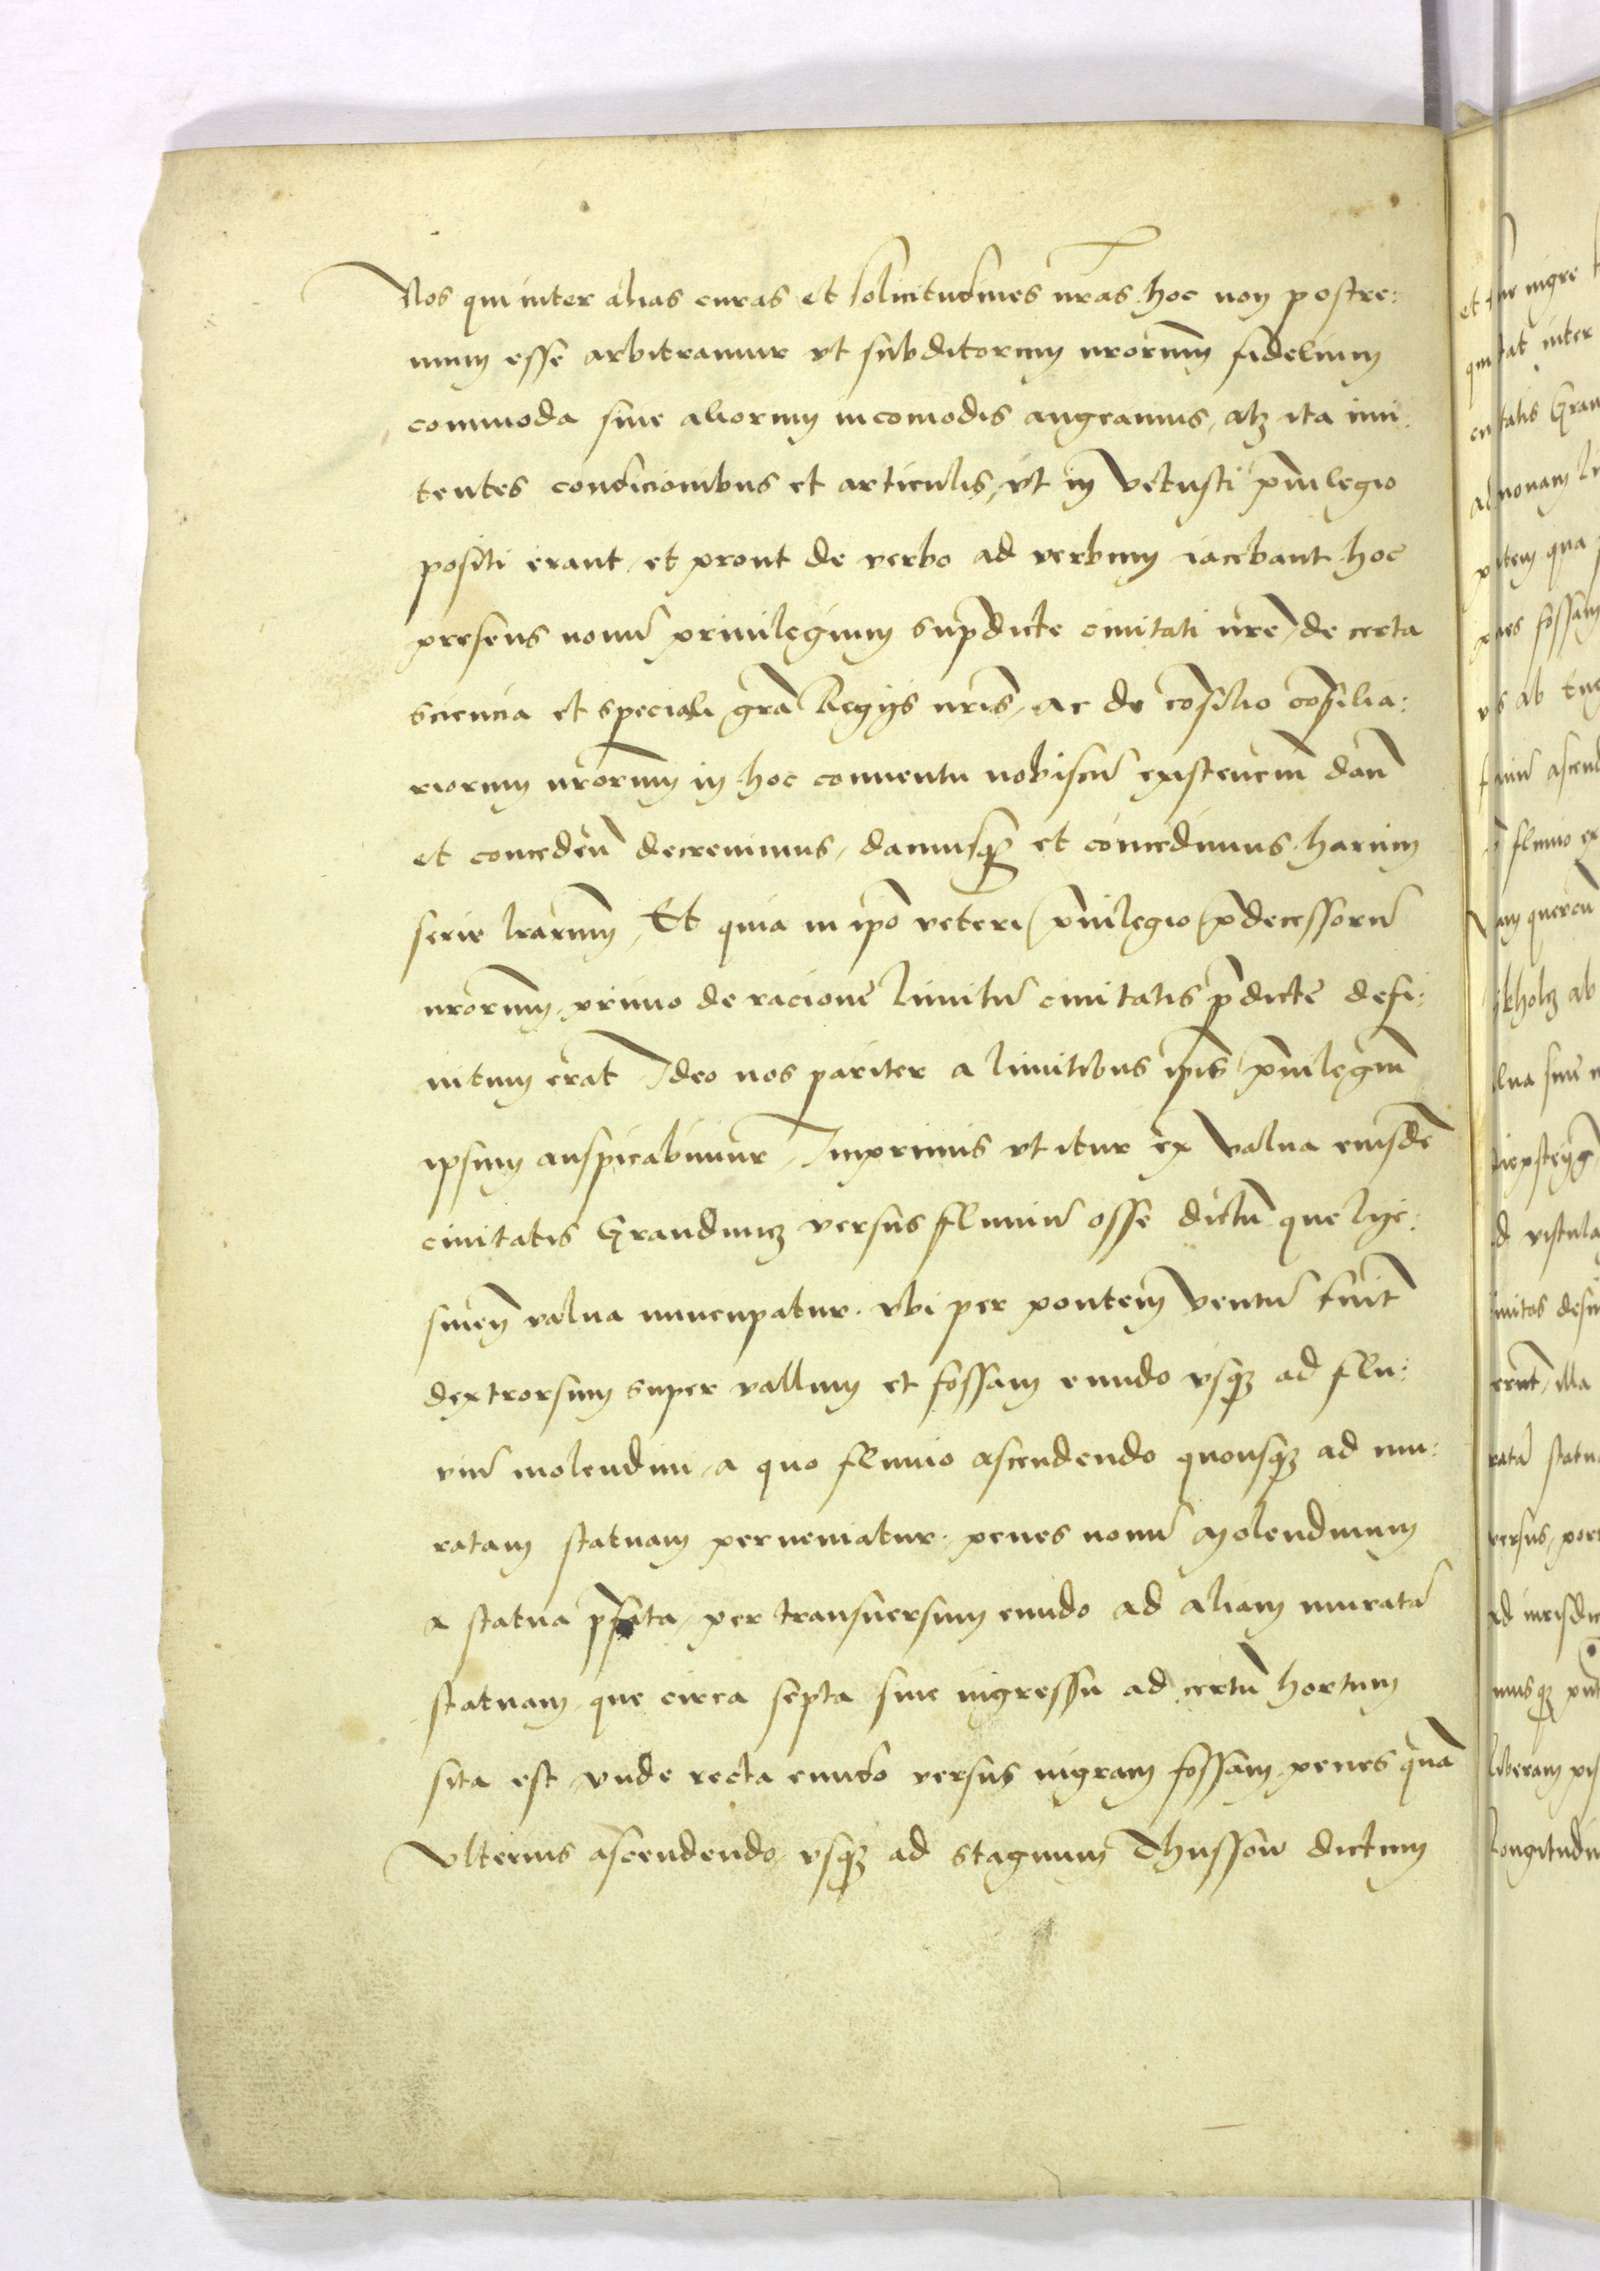 Nos qui inter alias curas et solicitudines nr̄as hoc non postre:
mum esse arbitramur vt subditorum nrōrum fidelium
commoda sine aliorum incomodis augeamus, atqz ita inni:
tentes condicionibus et articulis, vt in vetusti pruilegio
positi erant, et prout de verbo ad verbum iacebant hoc
presens nouū priuilegium supᵈdicte ciuitati nrē, de certa
sciencia et speciali grā Regijs nrīs, ac de cōsilio cōsilia:
riorum nrōrum in hoc conuentu nobiscū existencīm dān
et conceden̄ decreuimus, damusqz et concedimus harum
serie lrārum, Et quia in ipō veteri pruilegio pdecessorū
nrōrum, primo de racione limitū ciuitatis p̄dicte defi:
nitum erat Ideo nos pariter a limitibus ip̄is pruilegiū
ipsum auspicabimur, Inprimis vt itur ex valua eiusdē
ciuitatis Graudincz versus fluuiū osse dictū que lije:
sinen valua nuncupatur. vbi per pontem ventū fuit
dextrorsum super vallum et fossam eundo vsqz ad flu:
uiū molendini, a quo fluuio ascendendo quousqz ad mu:
ratam statuam perueniatur, penes nouū Molendinum
a statua p̄fata, per transuersum eundo ad aliam muratā
statuam, que circa septa siue ingressu ad certū hortum
sita est, vnde recta eundo versus nigram fossam penes quā
vlterius ascendendo, vsqz ad stagnum Thusson dictum
et siue nigre
ciuitatis Grau
ad nonam li
fossam
ascend
fluuio ex
am quercū
kholcz ab
d vistula
erūt, illa
ratā statu
versus, por
ad iurisdic
liberam pis
longitudin